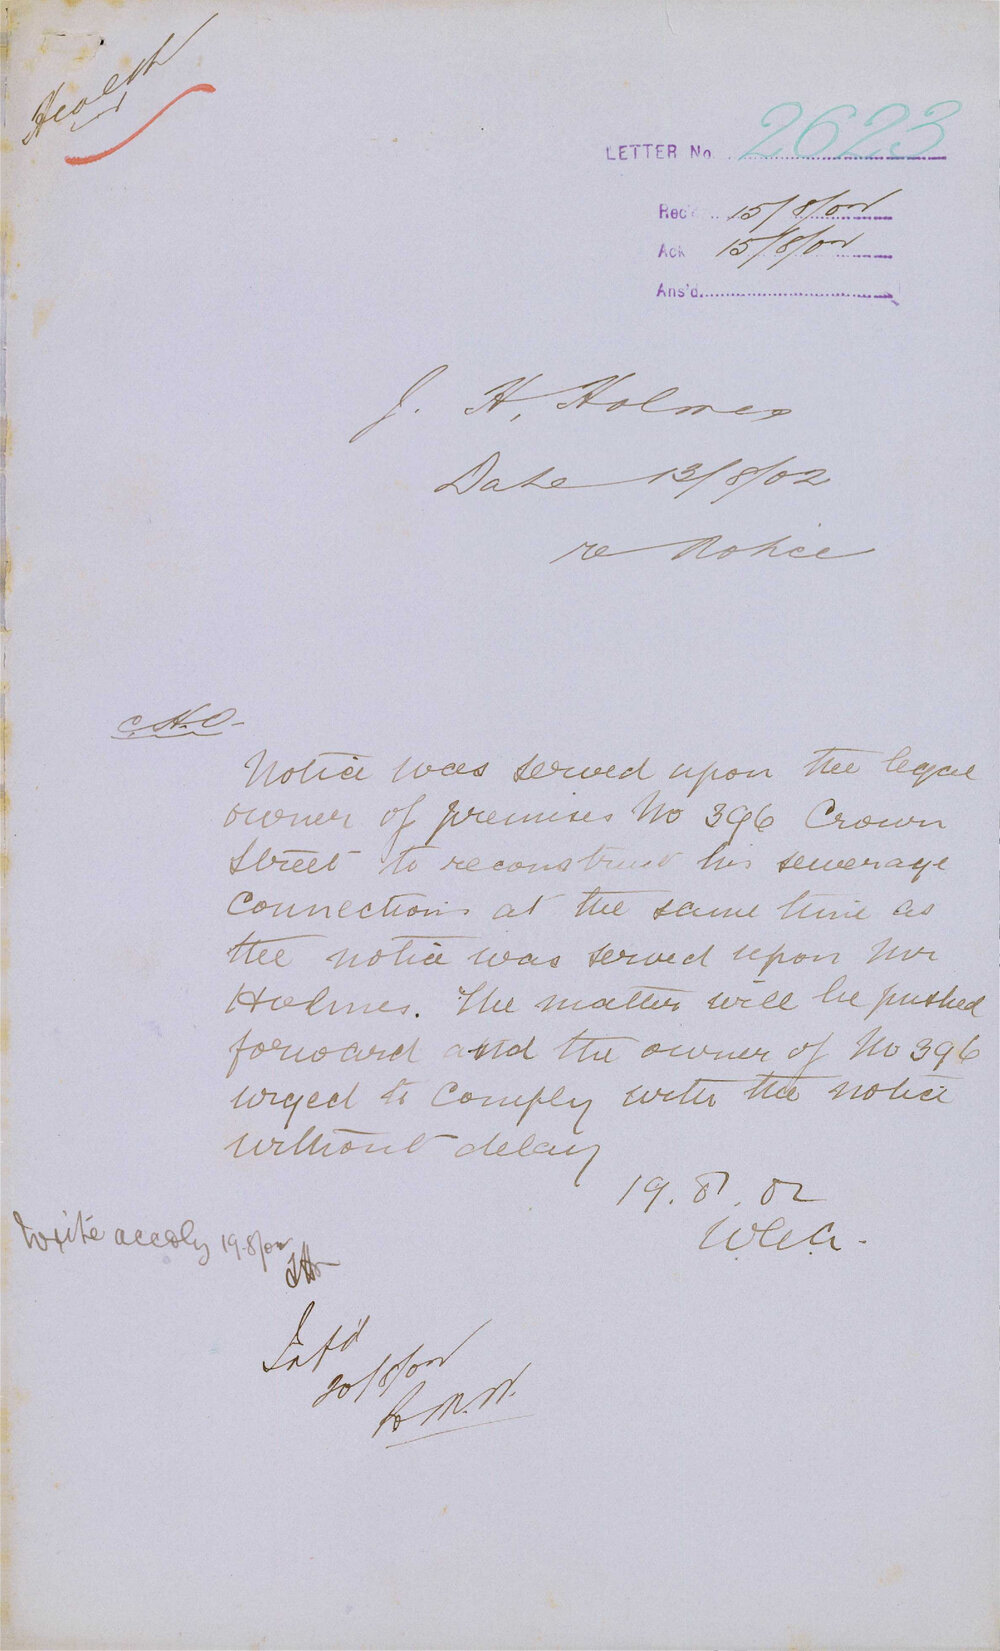 Health
LETTER No. 2623
Rec'd 15/8/02
Ack 15/8/02
Ans'd
J. H. Holmes
Date 13/8/02
re Notice
C H.O-
Notice was served upon the legal
owner of premises No 396 Crown
Street to reconstruct his sewerage
connections at the same time as
the notice was served upon Mr
Holmes. The matter will be pushed
forward and the owner of No 396
urged to comply with the notice
without delay
19.8.02
Write accdly 19.8/02
Inf'd
20/8/02